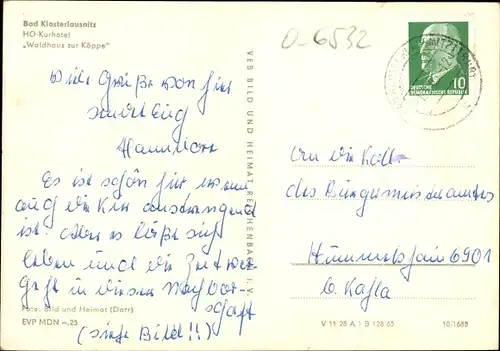 Bad Klosterlausnitz
HO-Kurhotel
„Waldhaus zur Köppe"
O-6532
10
DEUTSCHE
DEMOKRATISCHE REPUBLIK
Viele Grüße von hier
sendet Eug
Es ist schön hier wenn
aug die Kur anstrengend
ist. Aber es läßt sich
leben und die Zeit ver-
geht in dieser Nachbar-
schaft
(siehe Bild!!)
An die Koll.
des Bürgermeisteramtes
Hummelshain 6901
b. Kahla
VEB BILD UND HEIMAT REICHENBACH I. V.
Foto: Bild und Heimat (Darr)
EVP MDN –,25
V 11 28 A 1 B 128/65
10/1688